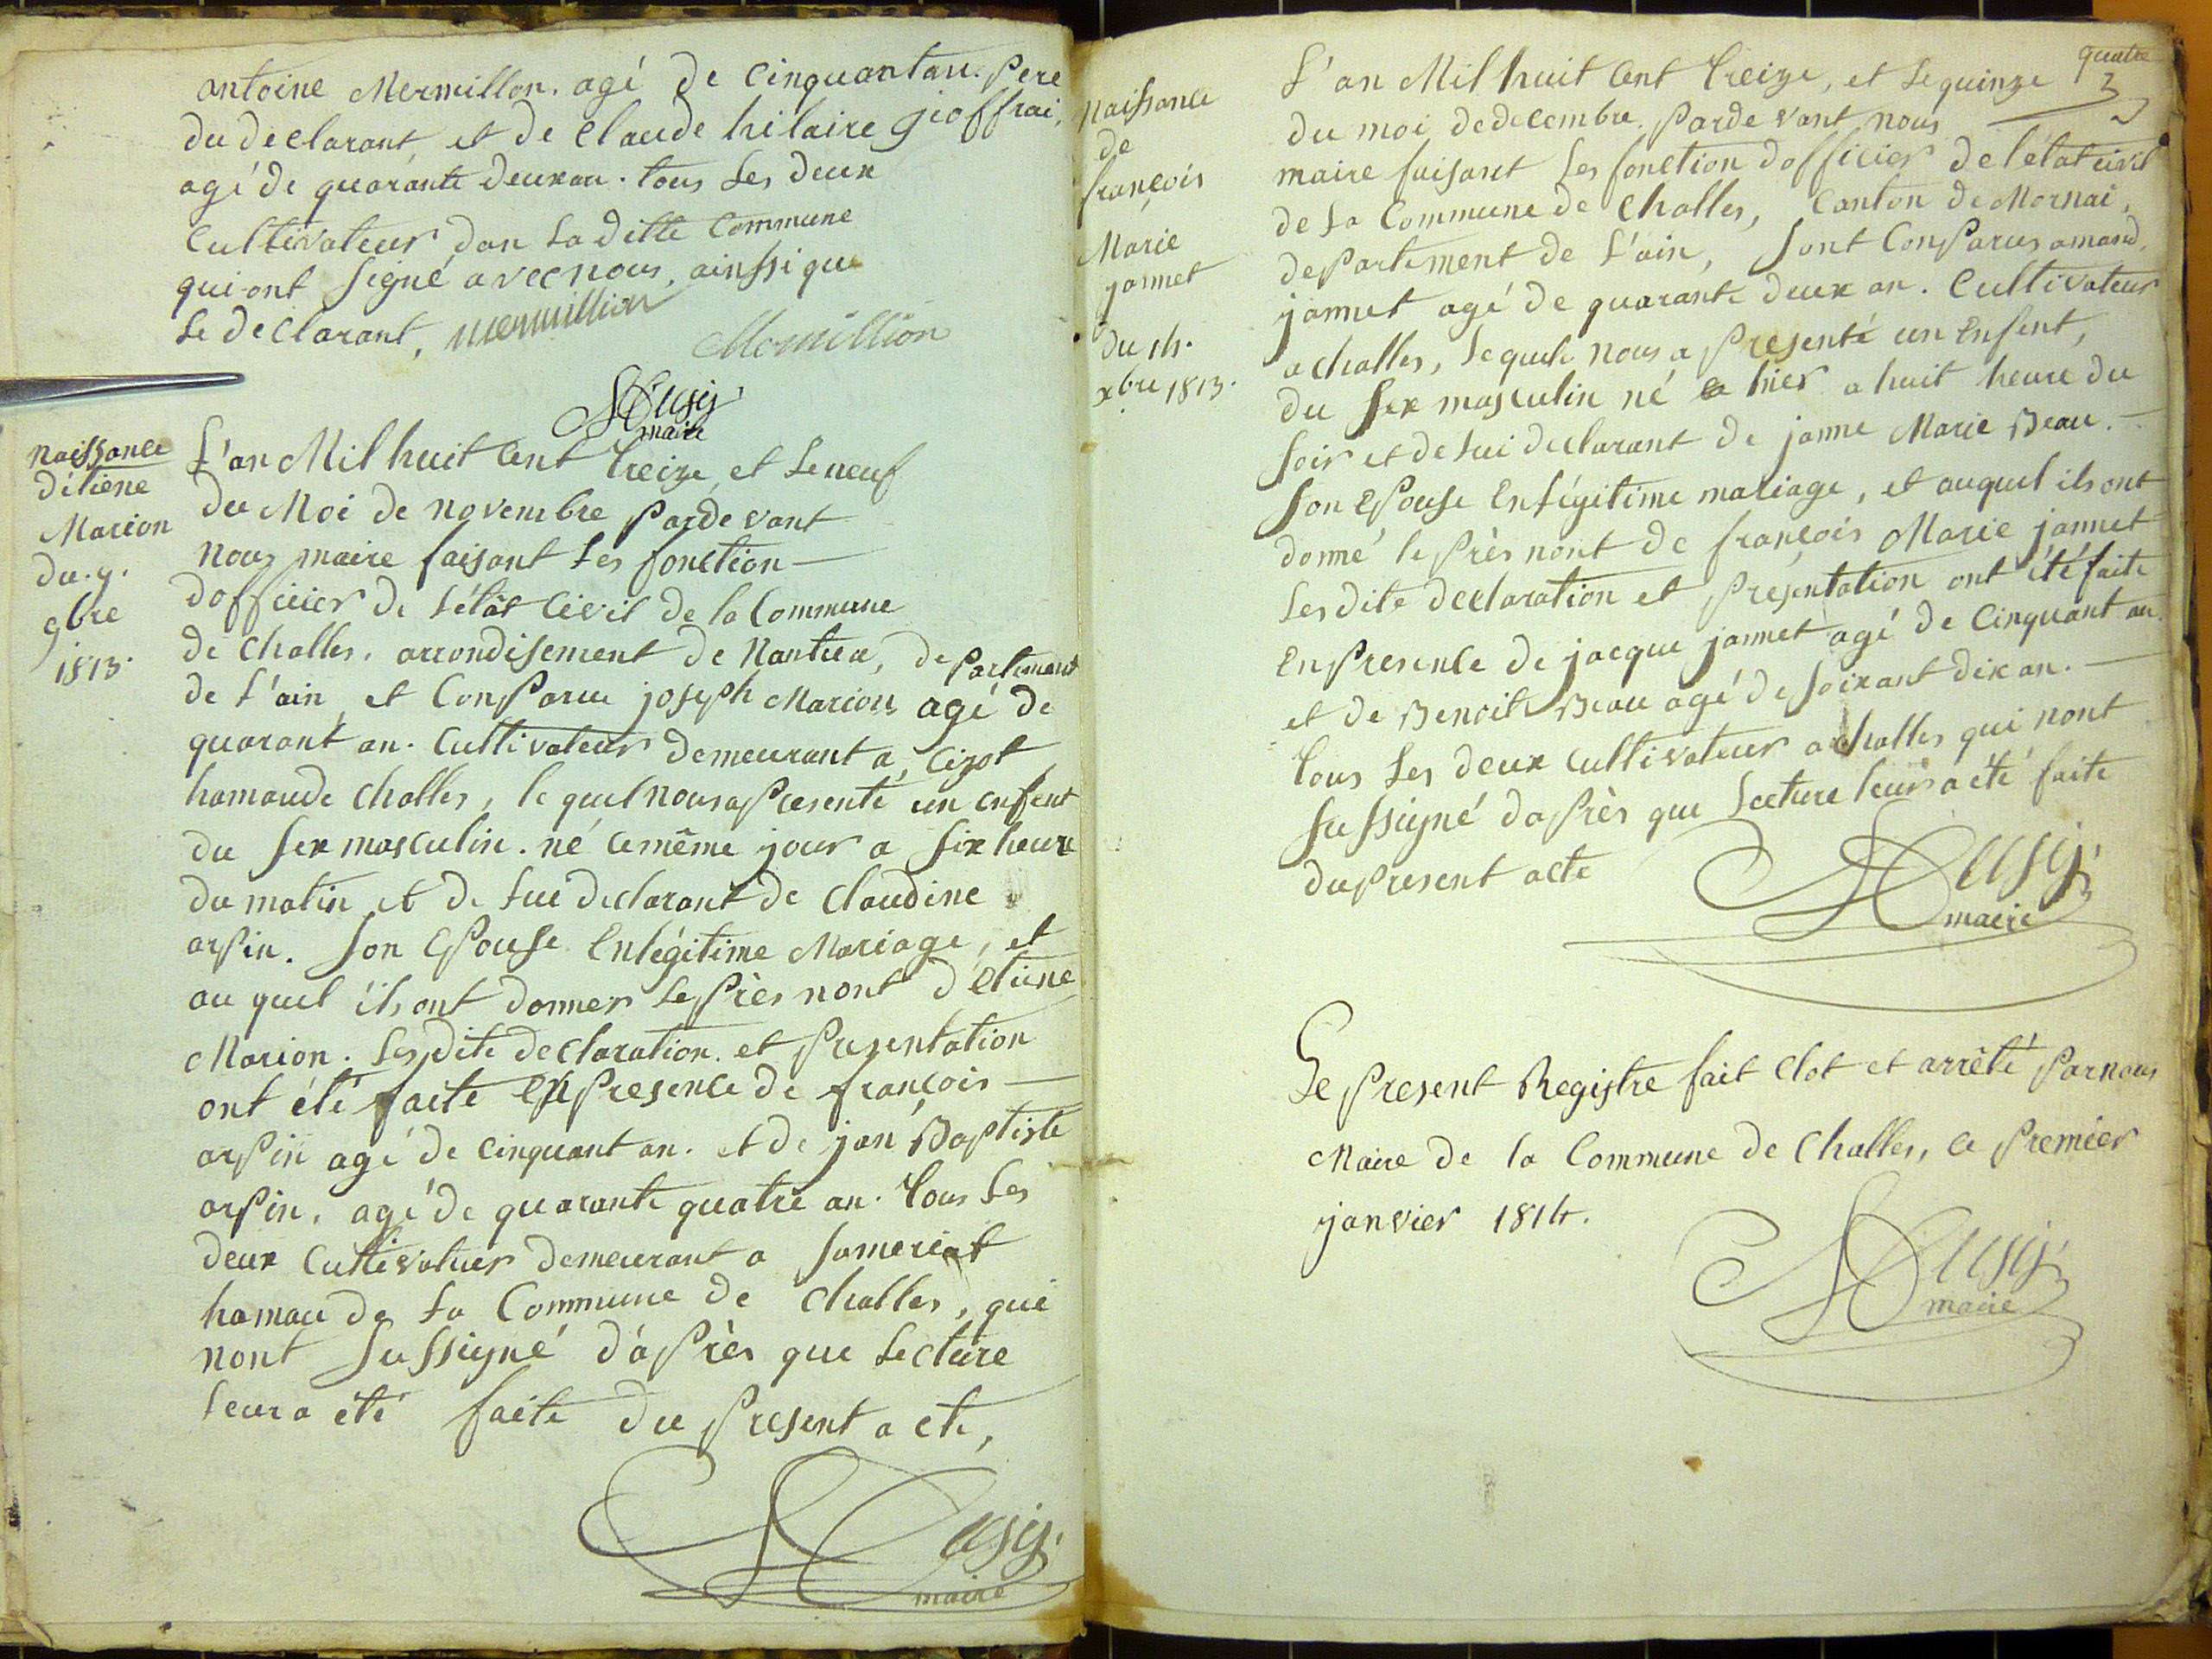 antoine Mermillon. agé de Cinquantan. Pere
du declarant et de Claude hilaire gioffrai,
agé de quarante deux an. tous Les deux
Cultivateur dan La ditte Commune
qui ont Signé avec nous, ainssi que
Le declarant, Mermillion
Mermillion
maire
naissance
détiene
Marion
du. 9.
9bre
1813.
L'an Mil huit Cent treize, et Le neuf
du Moi de novembre Parde vant
nous maire faisant Les fonction
dofficier de L'état Civil de la Commune
de Challes, arrondisement de Nantua, departement
de L'ain, et ConParue joseph Marion agé de
quarant an. Cultivateur demeurant a Cizot
hamaude Challes, le quel nous a Presenté un enfent
du Sex masculin. né ce même jour a Six heure
du matin et de Lui declarant de Claudine
arpin. Son ePouse Enlégitime Mariage, et
au quel ils ont donner Le Près nont d'étiene
Marion. Lesdite declaration. et Presentation
ont été faite en Presence de françois
arpin agé de Cinquant an. et de jan Baptiste
arpin, agé de quarante quatre an. tous Les
deux Cultivatuer demeurant a Sameriat
hamau de La Commune de Challes, qui
nont Sussigné d'áPrès que Lecture
Leur a été faite du Present acte,
maire
quatre
naissance
de
françois
Marie
jannet
du 14.
xbre 1813.
L'an Mil huit Cent treize, et Le quinze
du moi de decembre. Parde vant nous
maire faisant Les fonction dofficier de l'état civil
de La Commune de Challes, Canton de Mornai,
dePartement de L'ain, Sont ConParus amand.
jannet agé de quarante deux an. Cultivateur
a challes, Lequele nous a Presenté un Enfent,
du Sex masculin né hier a huit heure du
Soir et de Lui declarant de janne Marie Beau.
Son ePouse Enlégitime mariage, et auquel ils ont
donné le Près nont de françois Marie jannet
Lesdite declaration et Présentation ont été faite
enPresence de jacque jannet agé de Cinquant an.
et de Benoit Beau agé de Soixant dix an.
tous Les deux cultivateur a challes qui nont
Sussigné daPrès que Lecture leur a été faite
du Present acte
maire
Le Present Registre fait Clot et arrêté Par nous
Maire de la Commune de Challes, ce Premier
janvier 1814.
maire